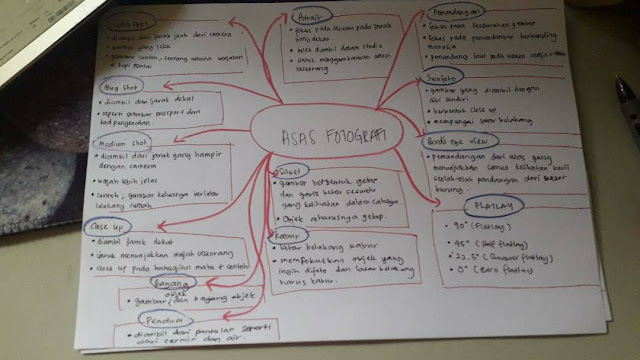 ASAS FOTOGRAFI
diambil dari jarak jauh dari kamera
yang jelas
Mug shot
diambil dari jarak dekat
seperti gambar passport dan
kad pengenalan
Medium shot
diambil dari jarak yang hampir
dengan camera
wajah lebih jelas
contoh, gambar keluarga berlatar
belakang rumah
Close up
diambil jarak dekat
untuk menunjukkan wajah seseorang
close up pada bahagian mata → contoh
Bayang
objek
gambar dan bayang objek
Pendua
diambil dari pantulan seperti
dari cermin dan air.
Potrait
fokus pada seseorang pada jarak
yang dekat
boleh diambil dalam studio
untuk menggambarkan emosi
seseorang
Siluet
gambar berbentuk gelap
dan garis besar sesuatu
yang kelihatan dalam cahaya
Objek seharusnya gelap.
Kabur
latar belakang kabur
memfokuskan objek yang
ingin difoto dan latar belakang
harus kabur.
Pemandangan
fokus pada keseluruhan gambar
fokus pada pemandangan berbanding
manusia
Swafoto
gambar yang diambil dengan
diri sendiri
berbentuk close up
mempunyai latar belakang
Birds eye view
pemandangan dari atas yang
menunjukkan semua kelihatan kecil
seolah-olah pandangan dari seekor
burung.
FLATLAY
90° (Flatlay)
45° (Half flatlay)
22.5° (Quarter flatlay)
0° (Zero flatlay)